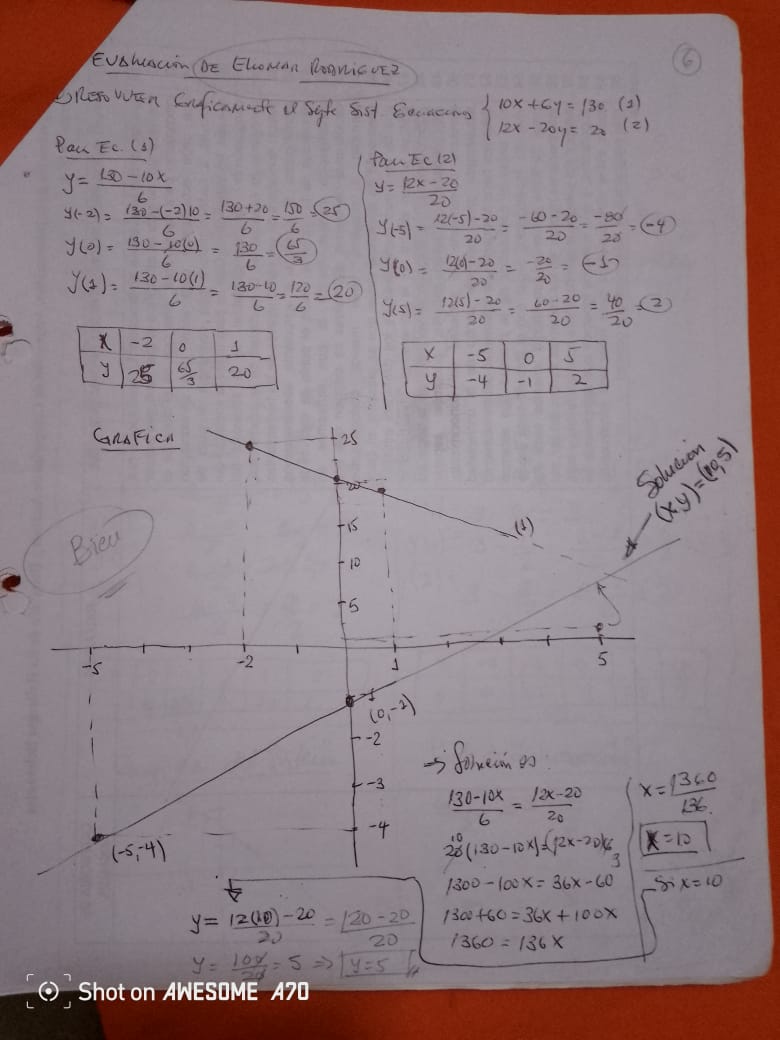 6
EVALUACIÓN DE ELIOMAR RODRIGUEZ
1) RESOLVER Gráficamente el Sgte Sist. Ecuaciones { 10x+6y=130 (1)
12x-20y=20 (2)
Para Ec. (1)
y= 130-10x / 6
y(-2)= 130-(-2)10 / 6 = 130+20 / 6 = 150 / 6 = 25
y(0)= 130-10(0) / 6 = 130 / 6 = 65/3
y(1)= 130-10(1) / 6 = 130-10 / 6 = 120 / 6 = 20
X -2 0 1
y 25 65/3 20
Para Ec (2)
y= 12x-20 / 20
y(-5)= 12(-5)-20 / 20 = -60-20 / 20 = -80 / 20 = -4
y(0)= 12(0)-20 / 20 = -20 / 20 = -1
y(5)= 12(5)-20 / 20 = 60-20 / 20 = 40 / 20 = 2
X -5 0 5
y -4 -1 2
GRAFICA
25
20
15
10
5
(1)
Solución
(x,y)=(10,5)
Bien
-5 -2 1 5
-1
(0,-1)
-2
-3
-4
(-5,-4)
→ Solución
130-10x / 6 = 12x-20 / 20
20 10 (130-10x)=(12x-20)6 3
1300-100x=36x-60
1300+60=36x+100x
1360=136x
x= 1360 / 136
x=10
Si x=10
y= 12(10)-20 / 20 = 120-20 / 20
y= 100 / 20 = 5 ⇒ y=5
Shot on AWESOME A70